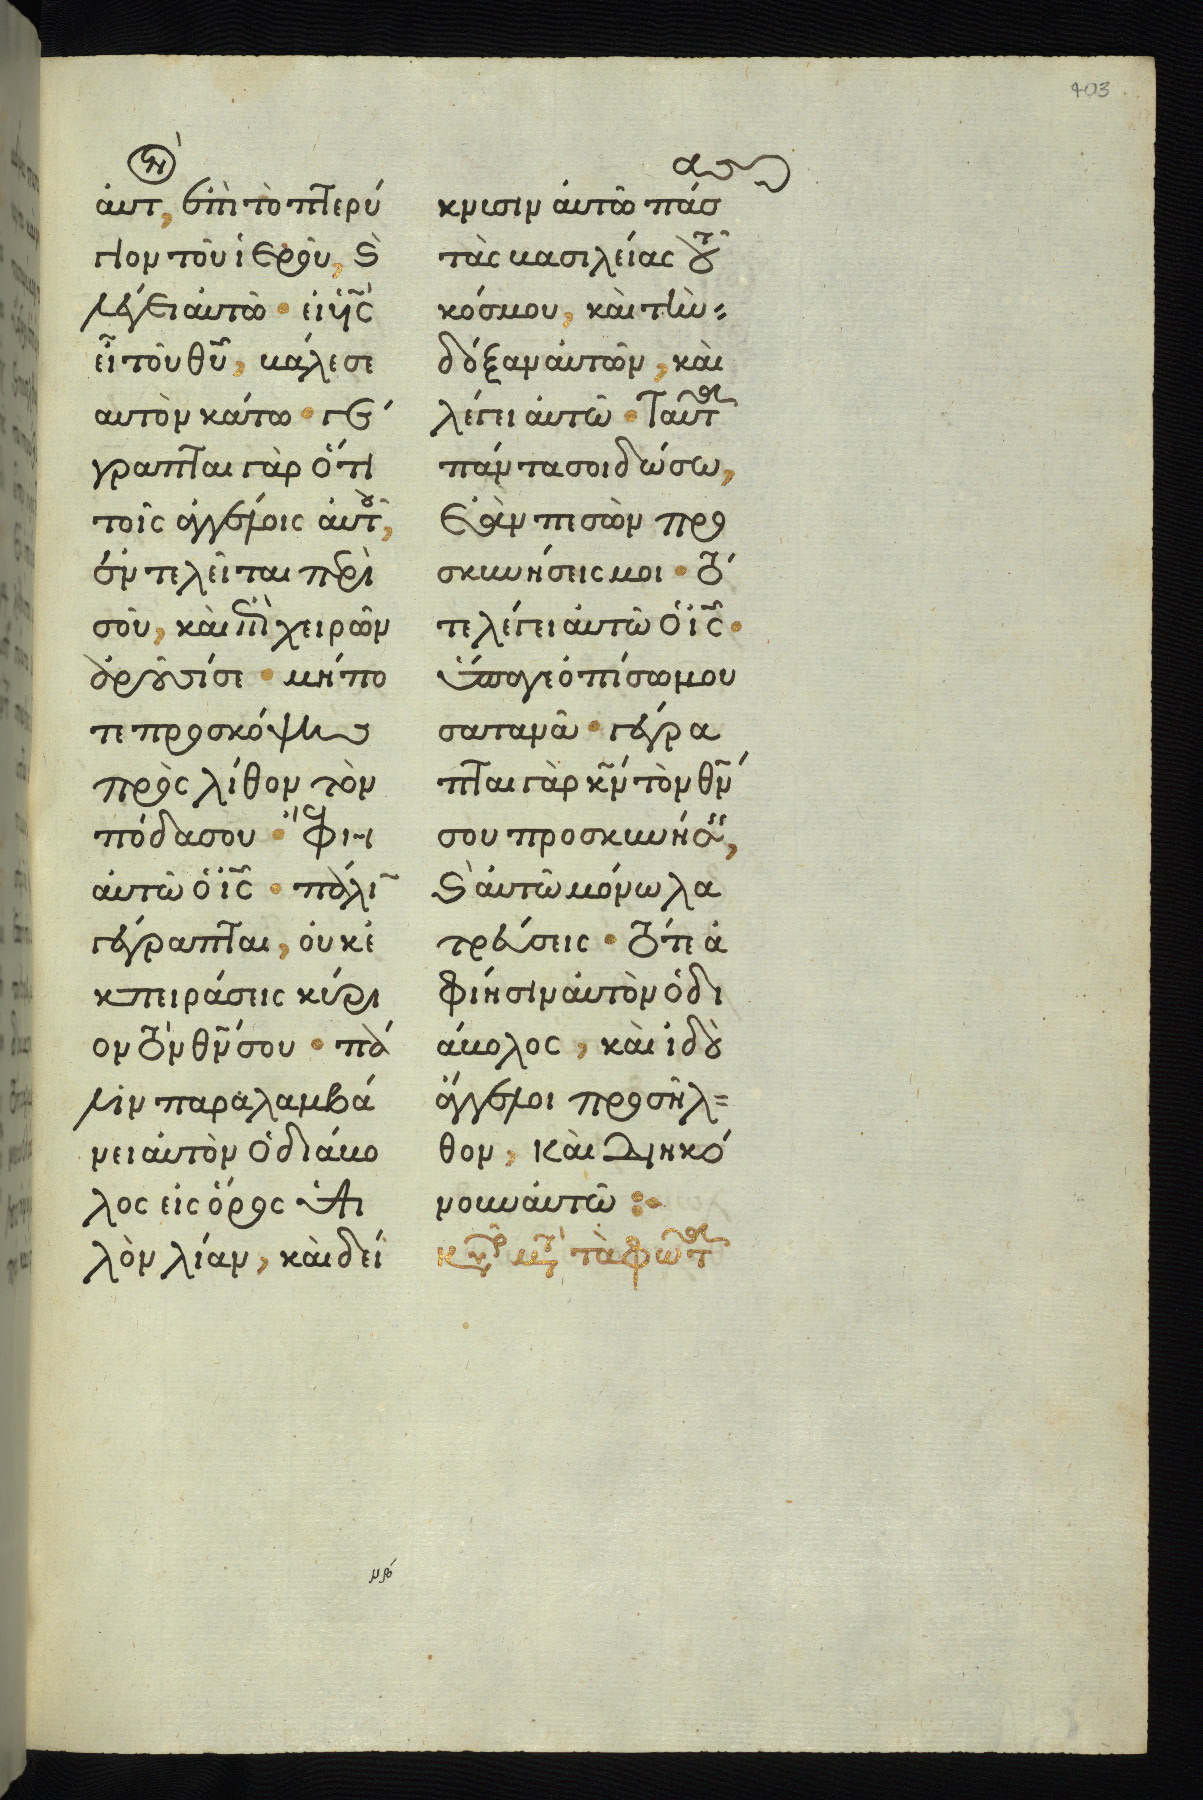 403
αὐτ, ἐπὶ τὸ πτερύ
γιον τοῦ ἱεροῦ, ϛ̀
λέγει αὐτῶ · εἰ υἱ̃ς
εἶ τοῦ θῦ, βάλεσε
αυτὸν κάτω · γέ
γραπται γὰρ ὅτι
τοῖς ἀγγέλοις ἀυτοῦ,
ἐντελεῖται περὶ
σοῦ, καὶ ἐπὶ χειρῶν
ἀροῦσί σε · μήπο
τε προσκόψης
πρὸς λίθον τὸν
πόδα σου · ἔφη
αὐτῶ ὁ ἰς̃ · πάλι
γέγραπται, οὐκ ἐ
κπειράσεις κύρι
ον τὸν θν̃ σου · πά
λιν παραλαμβά
νει αὐτὸν ὁ διάβο
λος εἰς ὄρος ὑψι
λὸν λίαν, καὶ δεί
κνισιν αὐτῶ πάσ
τὰς βασιλείας τοῦ
κόσμου, καὶ τὴν
δόξαν αὐτῶν, καὶ
λέγει αὐτῶ · ταῦτ
πάντα σοι δώσω,
ἐὰν πεσὼν προ
σκυνήσεις μοι · τό
τε λέγει αὐτῶ ὁ ἰς̃ ·
ὕπαγε ὀπίσω μου
σατανᾶ · γέγρα
πται γὰρ κν̃ τὸν θν̃
σου προσκυνήσεις,
ϛ̀ αὐτῶ μόνω λα
τρεύσεις · τότε ἀ
φίησιν αὐτὸν ὁ δι
άβολος, καὶ ἰδοὺ
ἄγγελοι προσῆλ=
θον, καὶ διηκό
νουν αὐτῶ :·
κυρ μτ τὰ φῶτ